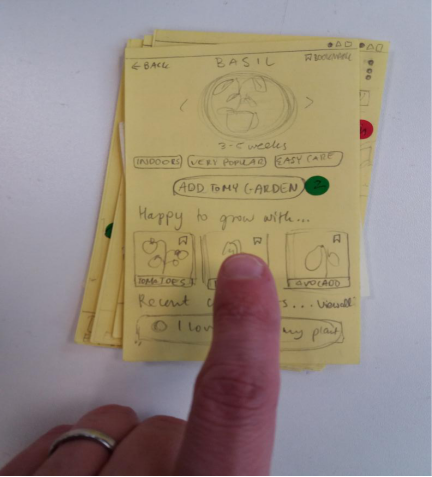 BASIL
← BACK
BOOKMARK
3-5 weeks
INDOORS VERY POPULAR EASY CARE
ADD TO MY GARDEN 2
Happy to grow with...
TOMATOES AVOCADO
Recent ... view all
I lov my plant